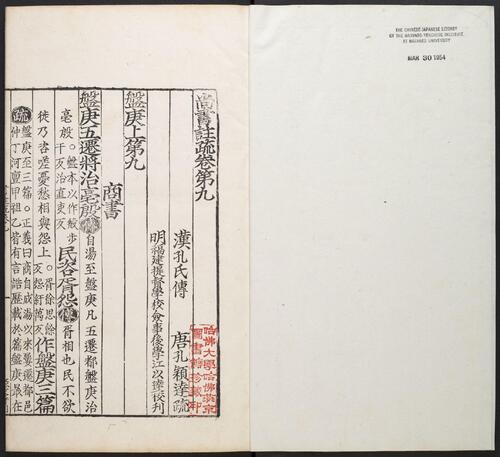 THE CHINESE-JAPANESE LIBRARY
OF THE HARVARD-YENCHING INSTITUTE
AT HARVARD UNIVERSITY
MAR 30 1954
尚書註疏卷第九
漢孔氏傳 唐孔穎達疏
明福建提督學校僉事後學江以達校刊
哈佛大學哈佛燕京
圖書館珍藏印
盤庚上第九
商書
盤庚五遷將治亳殷傳自湯至盤庚凡五遷都盤庚治
亳殷○盤本以作般步
干反治直吏反
民咨胥怨傳胥相也民不欲
徙乃咨嗟憂愁相與怨上○胥徐思餘
反怨紆萬反
作盤庚三篇
疏盤庚至三篇○正義曰商自成湯以來屢遷都邑
仲丁河亶甲祖乙皆有言誥歷載於篇盤庚最在